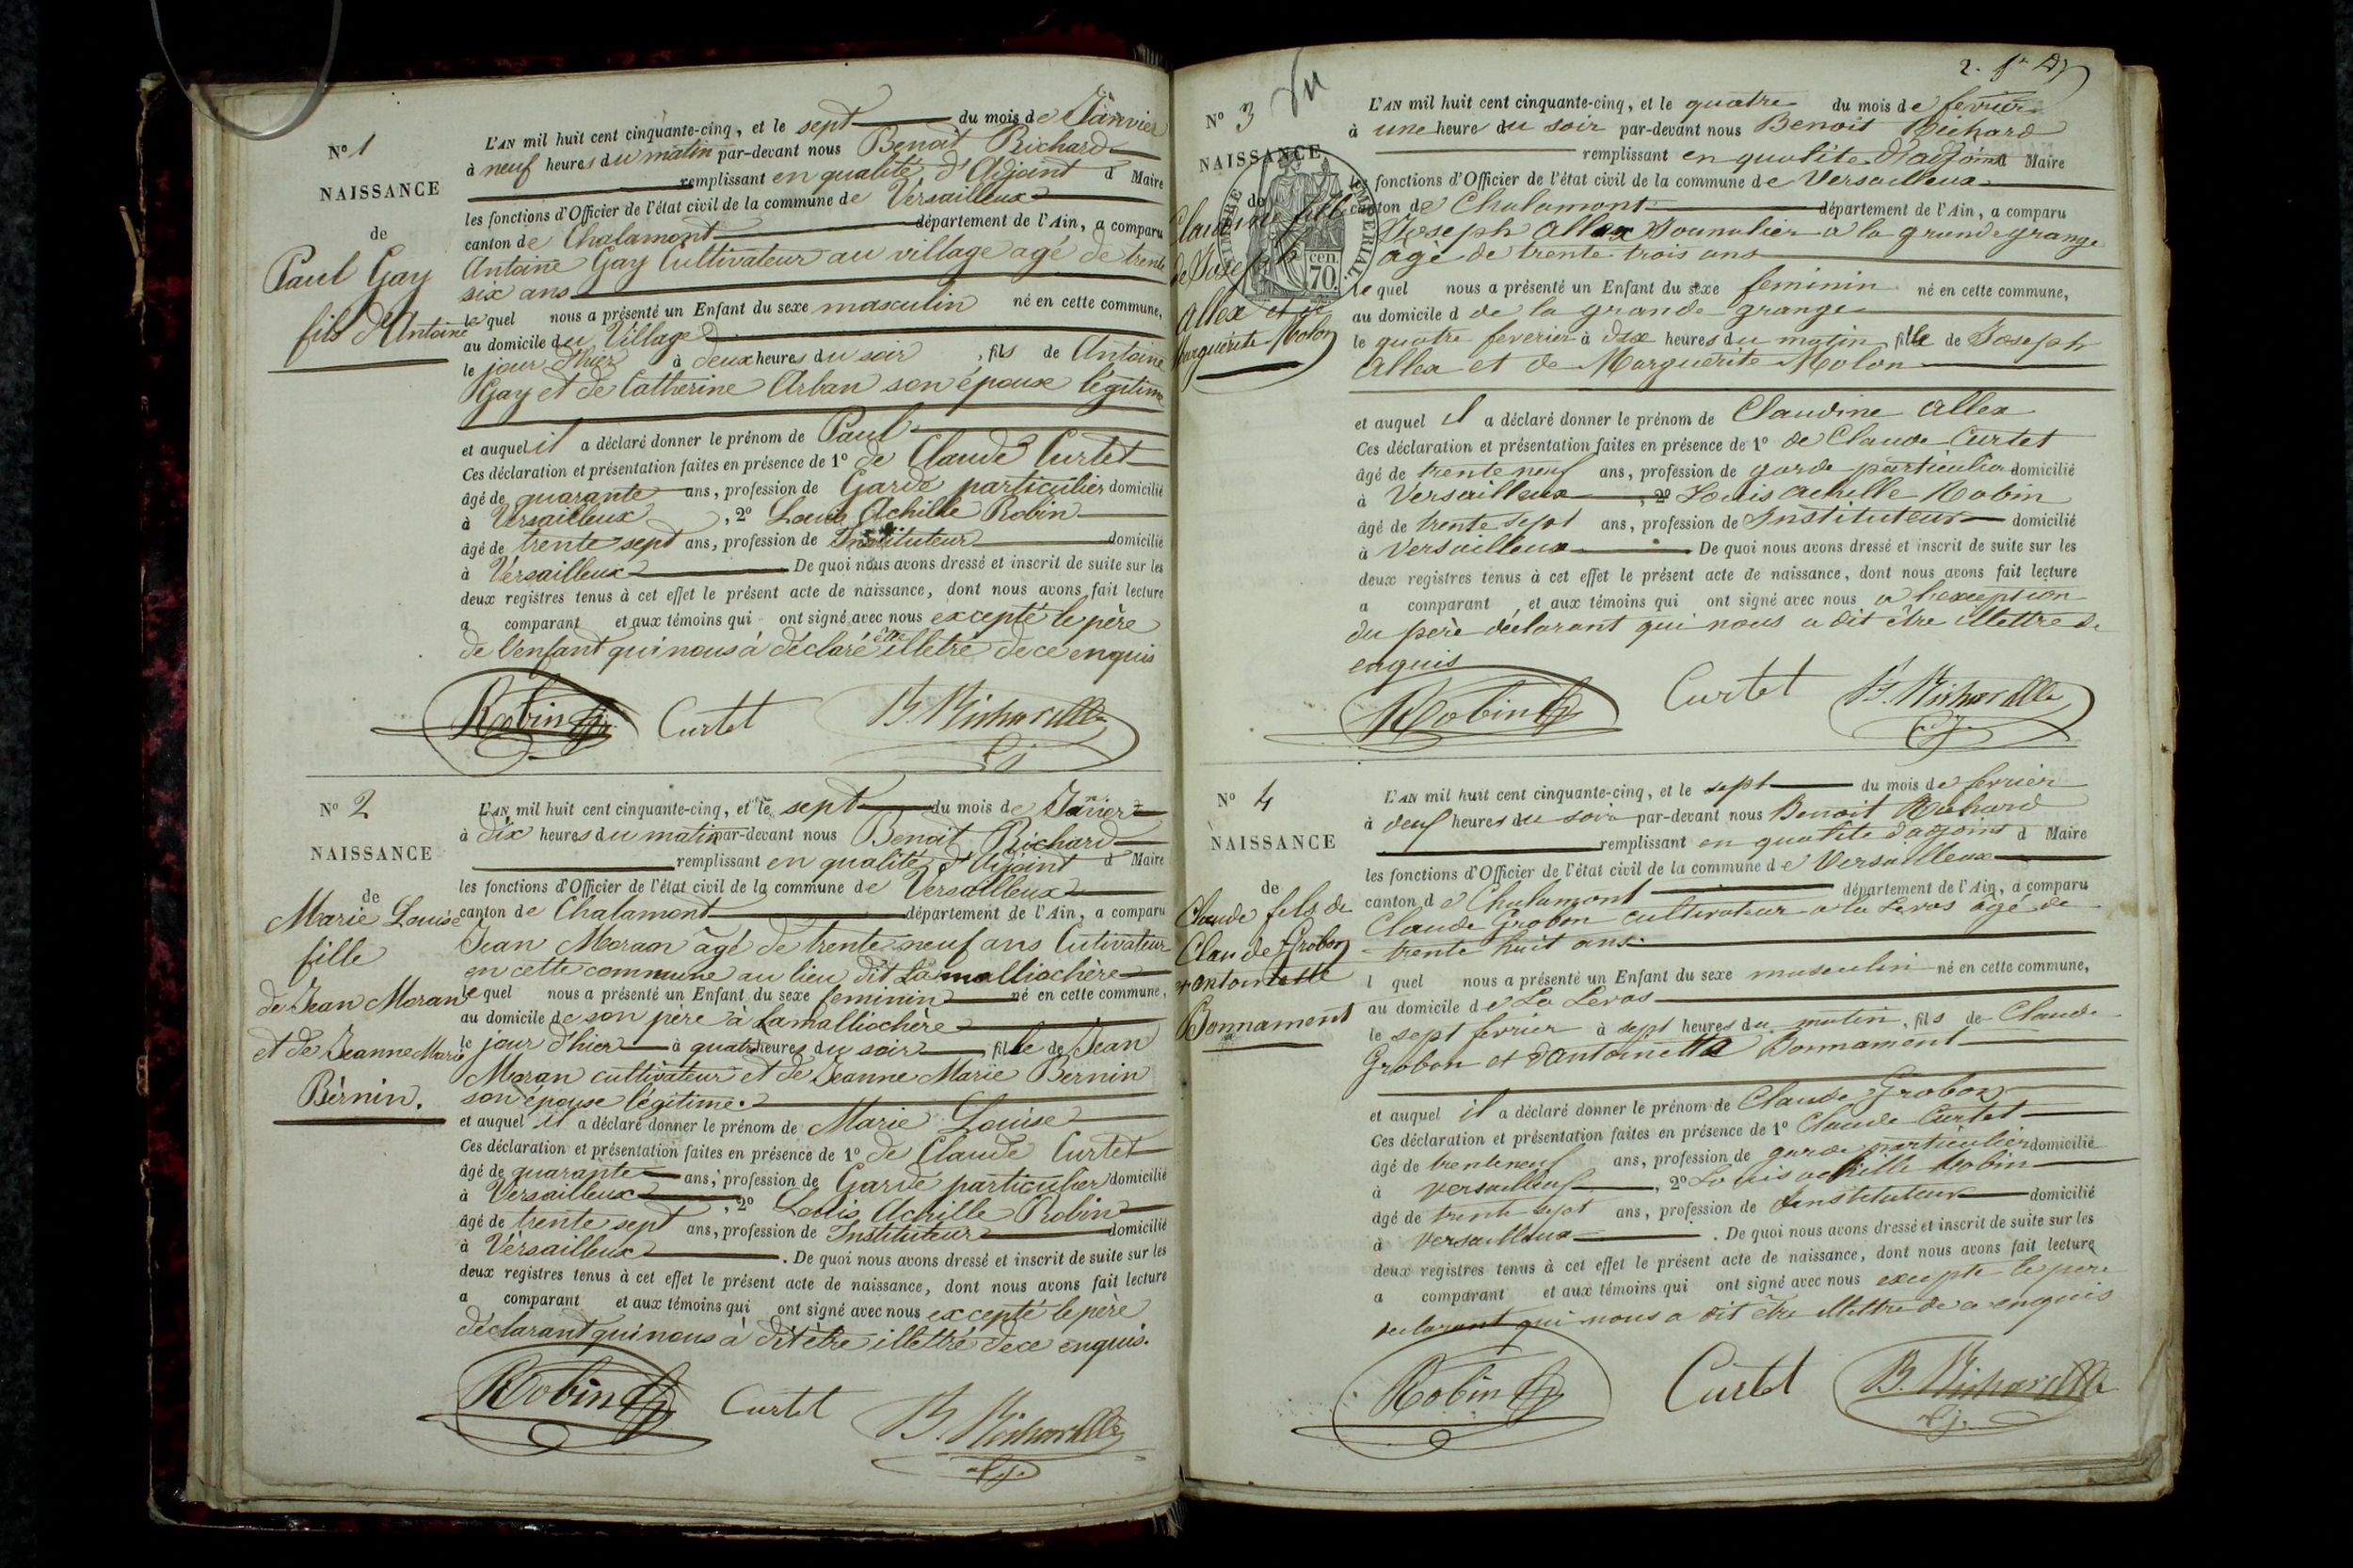 N° 1
NAISSANCE
de
Paul Gay
fils d'Antoine
L'AN mil huit cent cinquante-cinq, et le sept du mois de Janvier
à neuf heures du matin par-devant nous Benoit Richard
remplissant en qualité d'Adjoint d Maire
les fonctions d'Officier de l'état civil de la commune de Versailleux
canton de Chalamont département de l'Ain, a comparu
Antoine Gay Cultivateur au village agé de trente
six ans
lequel nous a présenté un Enfant du sexe masculin né en cette commune,
au domicile du Village
le jour d'hier à deux heures du soir, fils de Antoine
Gay et de Catherine Arban son épouse légitime
et auquel il a déclaré donner le prénom de Paul
Ces déclaration et présentation faites en présence de 1° de Claude Curtet
âgé de quarante ans, profession de Garde particulier domicilié
à Versailleux, 2° Louis Achille Robin
âgé de trente sept ans, profession de Instituteur domicilié
à Versailleux De quoi nous avons dressé et inscrit de suite sur les
deux registres tenus à cet effet le présent acte de naissance, dont nous avons fait lecture
a comparant et aux témoins qui ont signé avec nous excepté le père
de l'enfant qui nous à déclaré être illetré de ce enquis
Robin Curtet B. Richard
N° 2
NAISSANCE
de
Marie Louise
fille
de Jean Moran
et de Jeanne Marie
Bernin.
L'AN mil huit cent cinquante-cinq, et le sept du mois de Janvier
à dix heures du matin par-devant nous Benoit Richard
remplissant en qualité d'Adjoint d Maire
les fonctions d'Officier de l'état civil de la commune de Versailleux
canton de Chalamont département de l'Ain, a comparu
Jean Moran âgé de trente neuf ans Cutivateur
en cette commune au lieu dit Lamalliochère
lequel nous a présenté un Enfant du sexe feminin né en cette commune,
au domicile de son père à Lamalliochère
le jour d'hier à quatre heures du soir, fille de Jean
Moran cultivateur et de Jeanne Marie Bernin
son épouse légitime.
et auquel il a déclaré donner le prénom de Marie Louise
Ces déclaration et présentation faites en présence de 1° de Claude Curtet
âgé de quarante ans, profession de Garde particulier domicilié
à Versailleux, 2° Louis Achille Robin
âgé de trente sept ans, profession de Instituteur domicilié
à Versailleux. De quoi nous avons dressé et inscrit de suite sur les
deux registres tenus à cet effet le présent acte de naissance, dont nous avons fait lecture
a comparant et aux témoins qui ont signé avec nous excepté le père
déclarant qui nous à dit être illettré de ce enquis.
Robin Curtet B. Richard
N° 3
NAISSANCE
de
Claudine fille
de Joseph
Allex et de
Marguerite Molon
TIMBRE IMPERIAL
70 cen.
L'AN mil huit cent cinquante-cinq, et le quatre du mois de fevrier
à une heure du soir par-devant nous Benoit Richard
remplissant en qualite d'adjoint d Maire
les fonctions d'Officier de l'état civil de la commune de Versailleux
canton de Chalamont département de l'Ain, a comparu
Joseph Allex Journalier a la grande grange
agé de trente trois ans
lequel nous a présenté un Enfant du sexe feminin né en cette commune,
au domicile d de la grande grange
le quatre feverier à dix heures du matin fille de Joseph
Allex et de Marguerite Molon
et auquel il a déclaré donner le prénom de Claudine Allex
Ces déclaration et présentation faites en présence de 1° de Claude Curtet
âgé de trente neuf ans, profession de garde particulier domicilié
à Versailleux, 2° Louis Achille Robin
âgé de trente sept ans, profession de Instituteur domicilié
à Versailleux De quoi nous avons dressé et inscrit de suite sur les
deux registres tenus à cet effet le présent acte de naissance, dont nous avons fait lecture
a comparant, et aux témoins qui ont signé avec nous a l'exception
du père déclarant qui nous a dit être illettre de
enquis
Robin Curtet B. Richard
N° 4
NAISSANCE
de
Claude fils de
Claude Grobon
et antoinette
Bonnament
L'AN mil huit cent cinquante-cinq, et le sept du mois de fevrier
à neuf heures du soir par-devant nous Benoit Richard
remplissant en qualite d'adjoint d Maire
les fonctions d'Officier de l'état civil de la commune de Versailleux
canton de Chalamont département de l'Ain, a comparu
Claude Grobon cultivateur a la Leras âgé de
trente huit ans.
l quel nous a présenté un Enfant du sexe masculin né en cette commune,
au domicile de La Leras
le sept fevrier à sept heures du matin, fils de Claude
Grobon et d'antoinette Bonnament
et auquel il a déclaré donner le prénom de Claude Grobon
Ces déclaration et présentation faites en présence de 1° Claude Curtet
âgé de trente neuf ans, profession de garde particulier domicilié
à Versailleux, 2° Louis achille Robin
âgé de trente sept ans, profession de Instituteur domicilié
à Versailleux. De quoi nous avons dressé et inscrit de suite sur les
deux registres tenus à cet effet le présent acte de naissance, dont nous avons fait lecture
a comparant et aux témoins qui ont signé avec nous excepte le pere
declarant qui nous a dit être illettre de ce enquis
Robin Curtet B. Richard